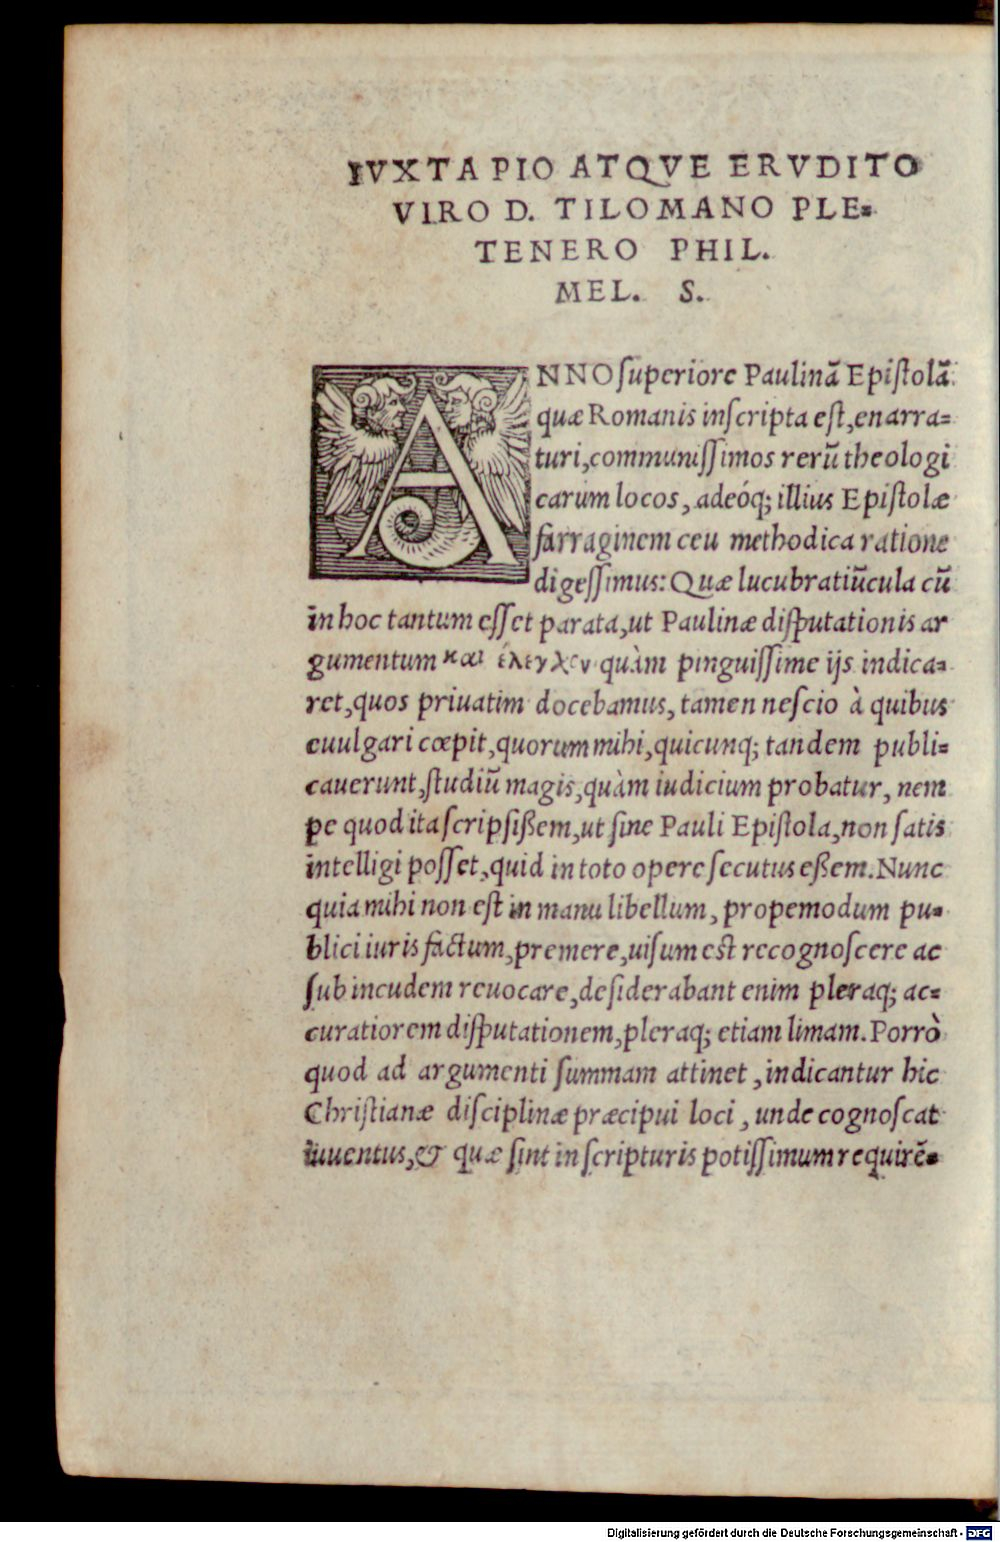 IVXTA PIO ATQVE ERVDITO
VIRO D. TILOMANO PLE⸗
TENERO PHIL.
MEL. S.
ANNO ſuperiore Paulinã Epiſtolã
quæ Romanis inſcripta eſt, enarra⸗
turi, communiſſimos rerũ theologi
carum locos, adeóq; illius Epiſtolæ
farraginem ceu methodica ratione
digeſſimus: Quæ lucubratiũcula cũ
in hoc tantum eſſet parata, ut Paulinæ diſputationis ar
gumentum και ἐλεγχον quàm pinguiſſime ijs indica⸗
ret, quos priuatim docebamus, tamen neſcio à quibus
euulgari cœpit, quorum mihi, quicunq; tandem publi⸗
cauerunt, ſtudiũ magis, quàm iudicium probatur, nem
pe quod ita ſcripſißem, ut ſine Pauli Epiſtola, non ſatis
intelligi poſſet, quid in toto opere ſecutus eßem. Nunc
quia mihi non eſt in manu libellum, propemodum pu⸗
blici iuris factum, premere, uiſum eſt recognoſcere ac
ſub incudem reuocare, deſiderabant enim pleraq; ac⸗
curatiorem diſputationem, pleraq; etiam limam. Porrò
quod ad argumenti ſummam attinet, indicantur hic
Chriſtianæ diſciplinæ præcipui loci, unde cognoſcat
iuuentus, & quæ ſint in ſcripturis potiſſimum requirẽ⸗
Digitalisierung gefördert durch die Deutsche Forschungsgemeinschaft - DFG